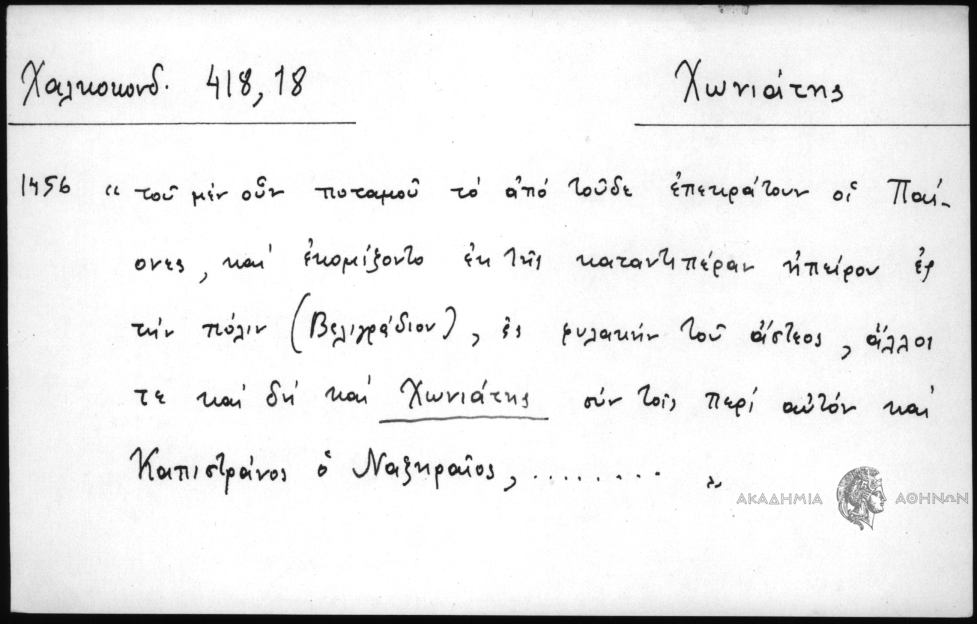 Χαλκοκονδ. 418,18 Χωνιάτης
1456 “ τοῦ μὲν οὖν ποταμοῦ τὸ ἀπὸ τοῦδε ἐπεκράτουν οἱ Παί-
ονες, καὶ ἐκομίζοντο ἐκ τῆς καταντιπέραν ἠπείρου ἐς
τὴν πόλιν (Βελιγράδιον), ἐς φυλακὴν τοῦ ἄστεος, ἄλλοι
τε καὶ δὴ καὶ Χωνιάτης σὺν τοῖς περὶ αὐτὸν καὶ
Καπιστράνος ὁ Ναζηραῖος, ........ „
ΑΚΑΔΗΜΙΑ ΑΘΗΝΩΝ